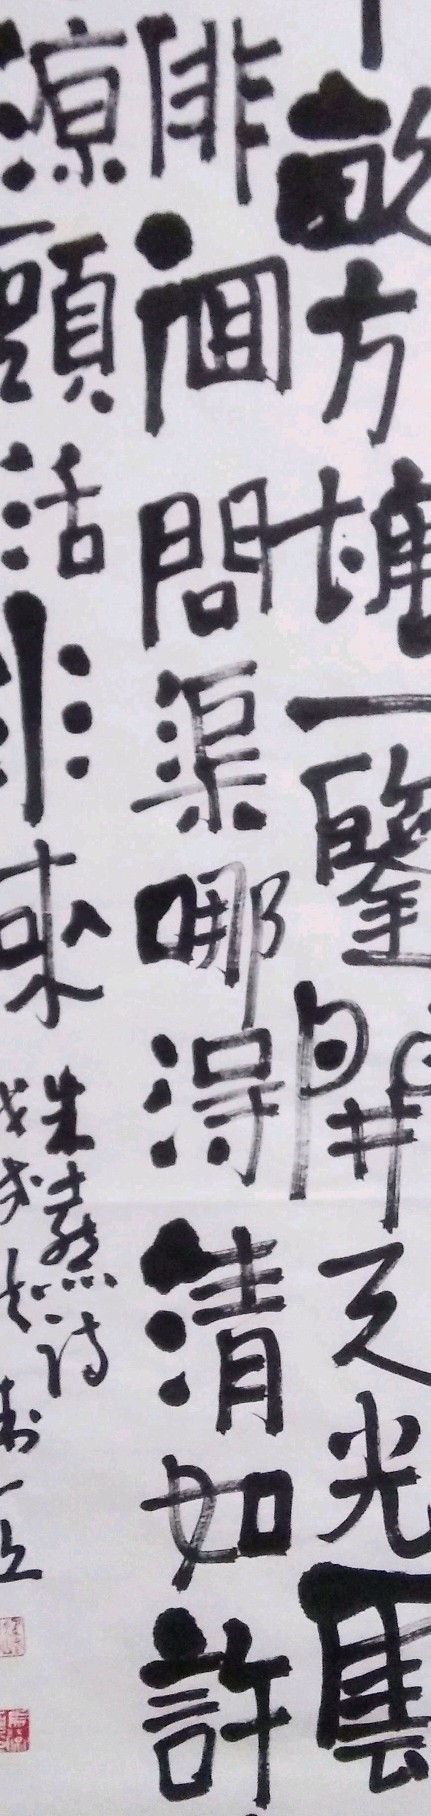 畝方塘一鑒開天光雲
徘徊問渠哪得清如許
源頭活水來
朱熹詩
戊戌